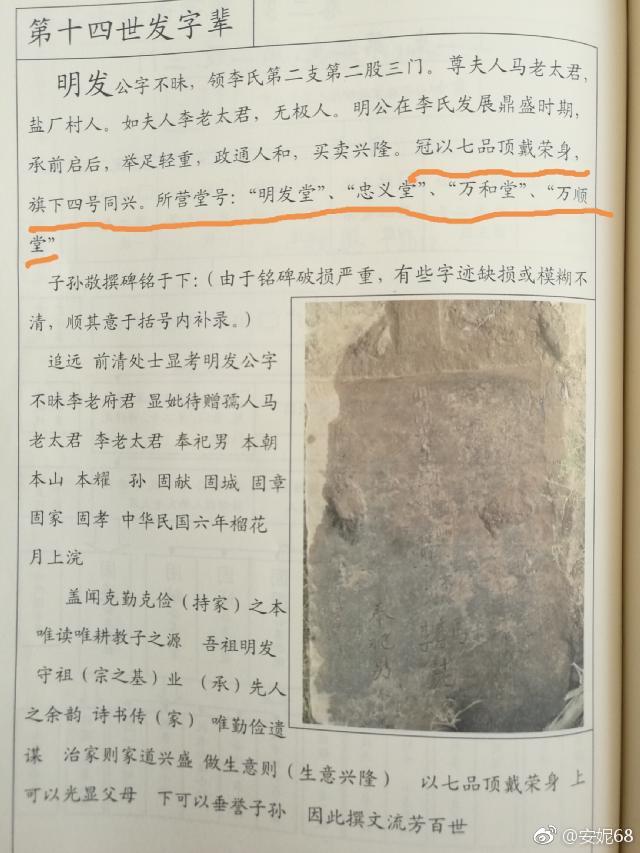 第十四世发字辈
明发公字不昧，领李氏第二支第二股三门。尊夫人马老太君，
盐厂村人。如夫人李老太君，无极人。明公在李氏发展鼎盛时期，
承前启后，举足轻重，政通人和，买卖兴隆。冠以七品顶戴荣身，
旗下四号同兴。所营堂号：“明发堂”、“忠义堂”、“万和堂”、“万顺
堂”
子孙敬撰碑铭于下：（由于铭碑破损严重，有些字迹缺损或模糊不
清，顺其意于括号内补录。）
追远 前清处士显考明发公字
不昧李老府君 显妣待赠孺人马
老太君 李老太君 奉祀男 本朝
本山 本耀 孙 固献 固城 固章
固家 固孝 中华民国六年榴花
月上浣
盖闻克勤克俭（持家）之本
唯读唯耕教子之源 吾祖明发
守祖（宗之基）业 （承）先人
之余韵 诗书传（家） 唯勤俭遗
谋 治家则家道兴盛 做生意则（生意兴隆） 以七品顶戴荣身 上
可以光显父母 下可以垂誉子孙 因此撰文流芳百世
奉祀男
@安妮68